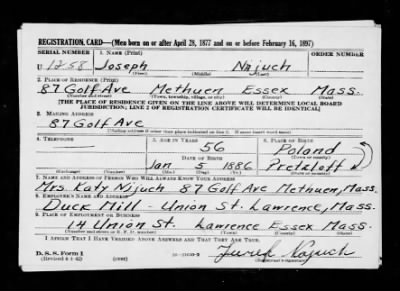 REGISTRATION CARD—(Men born on or after April 28, 1877 and on or before February 16, 1897)
SERIAL NUMBER 1. NAME (Print) ORDER NUMBER
U 1258 Joseph Najuch
(First) (Middle) (Last)
2. PLACE OF RESIDENCE (Print)
87 Golf Ave Methuen Essex Mass.
(Number and street) (Town, township, village, or city) (County) (State)
[THE PLACE OF RESIDENCE GIVEN ON THE LINE ABOVE WILL DETERMINE LOCAL BOARD
JURISDICTION; LINE 2 OF REGISTRATION CERTIFICATE WILL BE IDENTICAL]
3. MAILING ADDRESS
87 Golf Ave
[Mailing address if other than place indicated on line 2. If same insert word same]
4. TELEPHONE 5. AGE IN YEARS 6. PLACE OF BIRTH
56 Poland
DATE OF BIRTH (Town or county)
Jan 5 1886
(Mo.) (Day) (Yr.) (State or country)
7. NAME AND ADDRESS OF PERSON WHO WILL ALWAYS KNOW YOUR ADDRESS
Mrs. Katy Nijuch 87 Golf Ave Methuen, Mass.
8. EMPLOYER'S NAME AND ADDRESS
Duck Mill - Union St. Lawrence, Mass.
9. PLACE OF EMPLOYMENT OR BUSINESS
14 Union St. Lawrence Essex Mass.
(Number and street or R. F. D. number) (Town) (County) (State)
I AFFIRM THAT I HAVE VERIFIED ABOVE ANSWERS AND THAT THEY ARE TRUE.
D. S. S. Form 1
(Revised 4-1-42) (over)